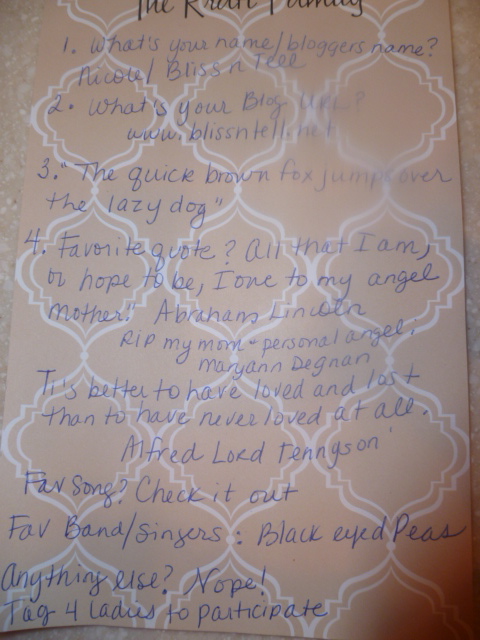 The Krah Family
1. What's your name/bloggers name?
Nicole/ Bliss n Tell
2. What's your Blog URL?
www.blissntell.net
3. "The quick brown fox jumps over
the lazy dog"
4. Favorite quote? All that I am,
or hope to be, I owe to my angel
mother!" Abraham Lincoln
RIP my mom - personal angel:
Maryann Degnan
Ti's better to have loved and lost
than to have never loved at all.
Alfred Lord Tennyson
Fav Song? Check it out
Fav Band/Singers: Black eyed Peas
Anything else? Nope!
Tag 4 ladies to participate